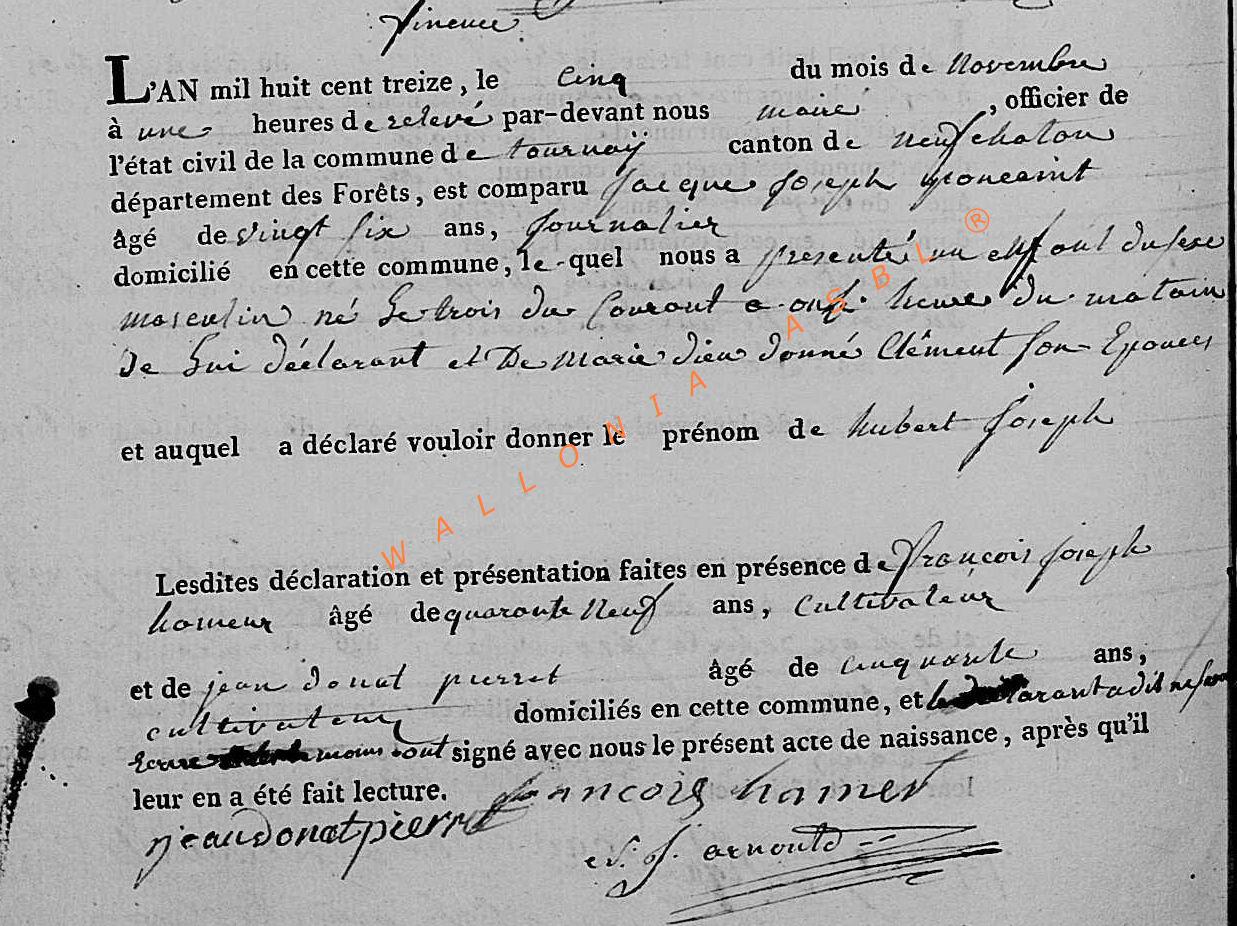 L'AN mil huit cent treize, le Cinq du mois de Novembre
à une heures de relevé par-devant nous maire, officier de
l'état civil de la commune de tournaÿ canton de neufchatau
département des Forêts, est comparu Jacque Joseph poncint
âgé de Vingt Six ans, Journalier
domicilié en cette commune, le quel nous a présenté un enfant du sexe
masculin né Le trois du Courant a onze heure du matain
De Lui déclarant et De Marie dieu donné Clément Son Epouses
et auquel a déclaré vouloir donner le prénom de hubert Joseph
Lesdites déclaration et présentation faites en présence de François Joseph
hameur âgé de quarante Neuf ans, Cultivateur
et de jean donat pierret âgé de cinquante ans,
cultivateur domiciliés en cette commune, et le déclarant a dit ne savoir
Ecrire moins ont signé avec nous le présent acte de naissance, après qu'il
leur en a été fait lecture. francois hamer
jeandonatpierret
J. arnould
WALLONIA ASBL ®